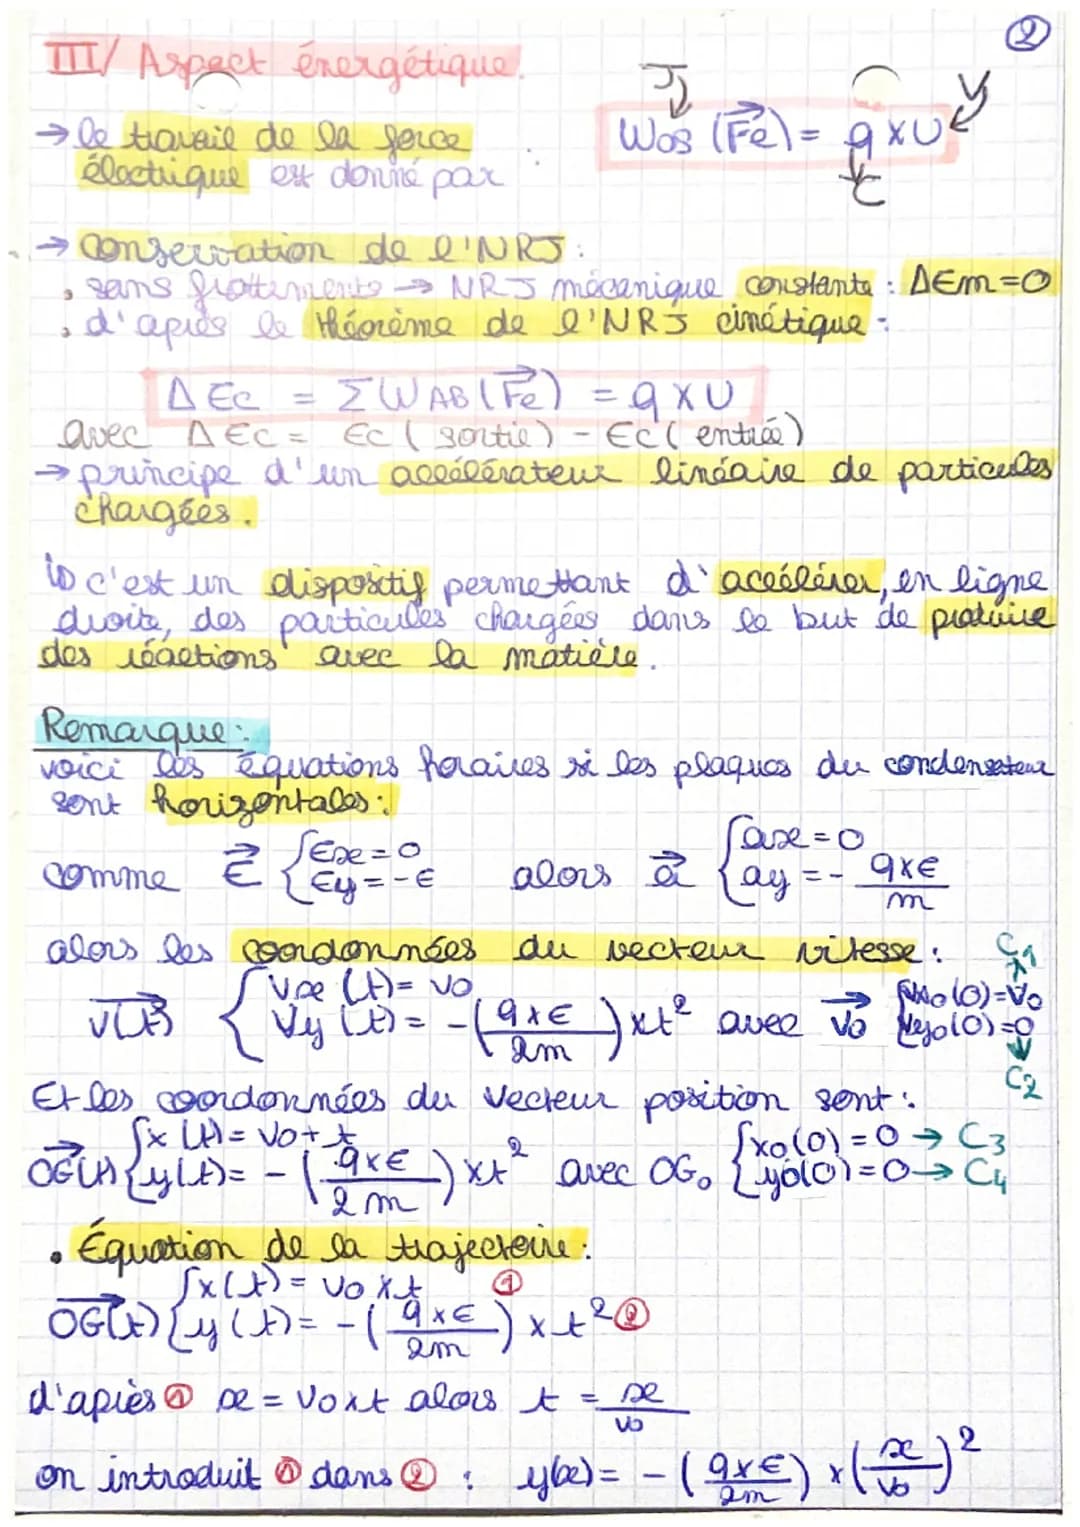 ②
III/ Aspect énergétique.
→ le travail de la force
électrique est donné par
J
V
Wos (Fe) = q x U
C
→ conservation de l'NRJ :
, sans frottements → NRJ mécanique constante : ΔEm=0
, d'après le théorème de l'NRJ cinétique :
ΔEc = ΣWAB(Fe) = q x U
avec ΔEc = Ec (sortie) - Ec (entrée)
→ principe d'un accélérateur linéaire de particules
chargées.
c'est un dispositif permettant d'accélérer, en ligne
droite, des particules chargées dans le but de produire
des réactions avec la matière.
Remarque :
voici les équations horaires si les plaques du condensateur
sont horizontales :
comme E { Ex = 0 Ey = -E alors a { ax = 0 ay = - qxE/m
alors les coordonnées du vecteur vitesse :
v(t) { Vx (t) = vo Vy (t) = -(qxE/2m) x t² avec vo { Vxo(0)=Vo → C1 Vyo(0)=0 → C2
Et les coordonnées du vecteur position sont :
OG(t) { x (t) = vo + t y(t) = -(qxE/2m) x t² avec OG₀ { xo(0) = 0 → C3 yo(0) = 0 → C4
• Équation de la trajectoire :
OG(t) { x(t) = vo x t ① y(t) = -(qxE/2m) x t² ②
d'après ① x = vo x t alors t = x/vo
on introduit ① dans ② : y(x) = -(qxE/2m) x (x/vo)²